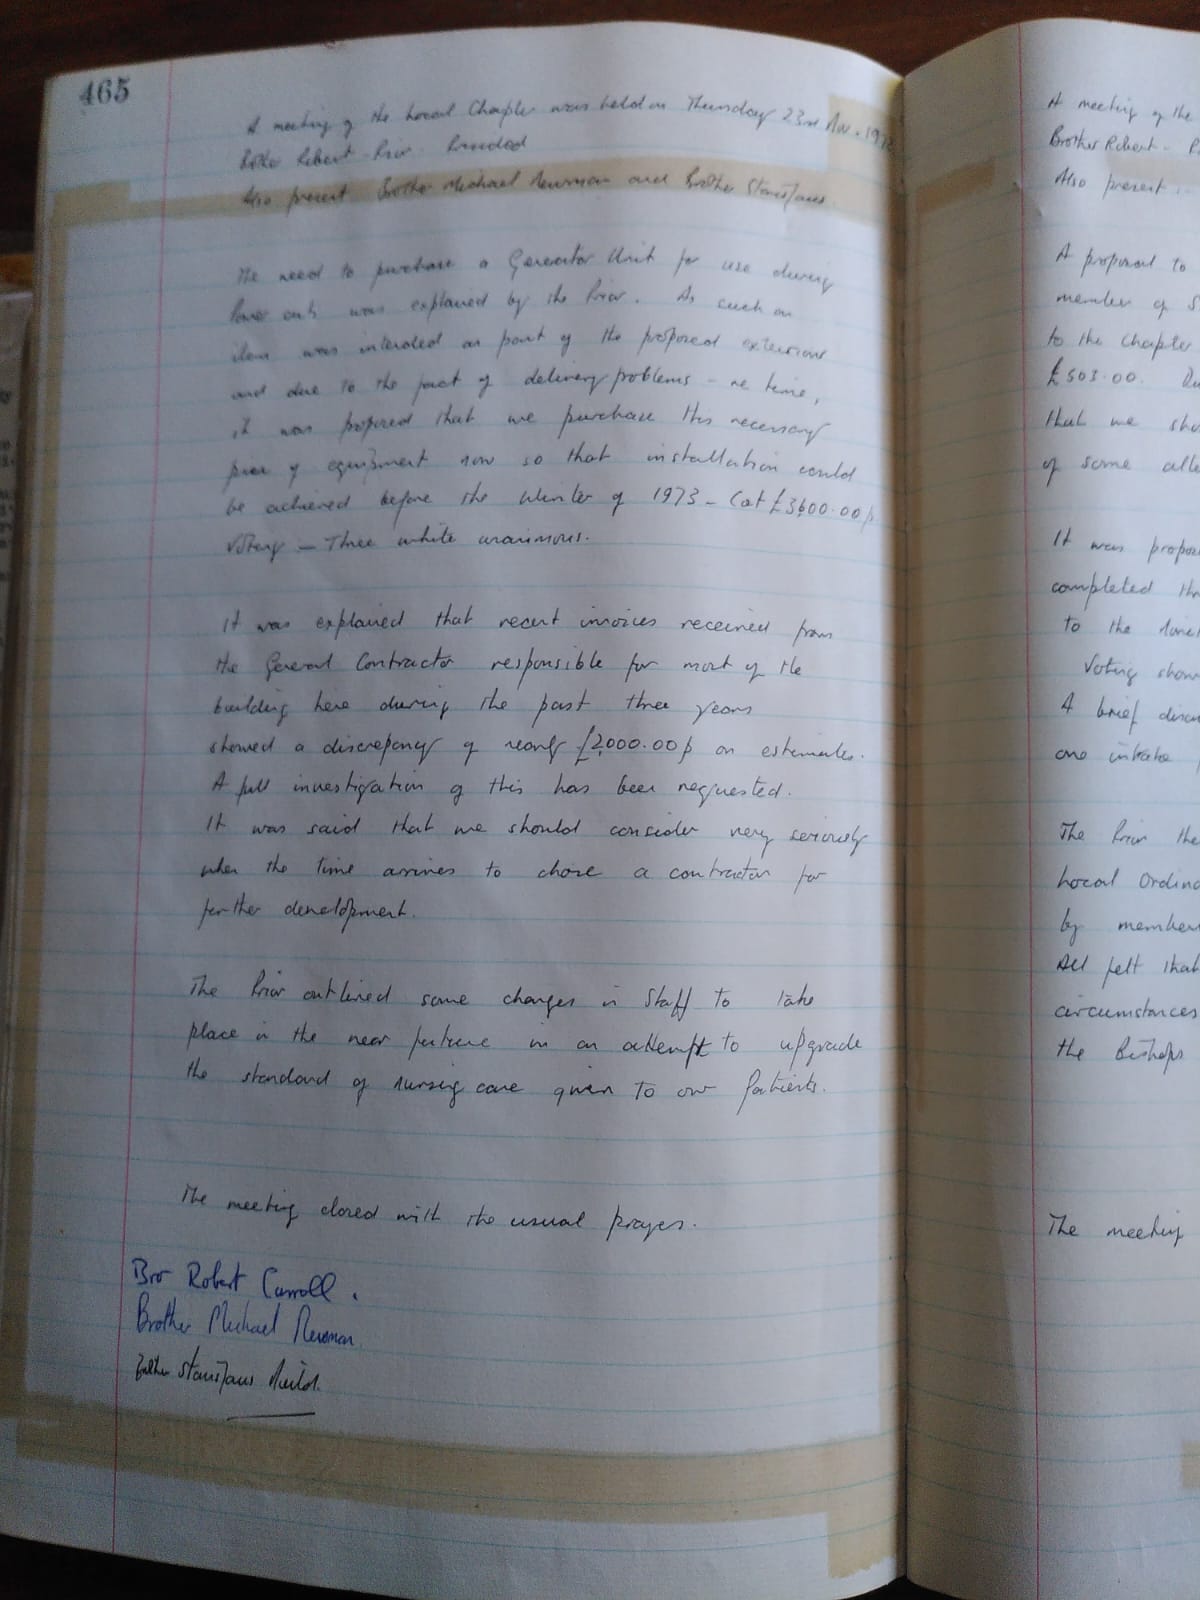 465
A meeting of the Local Chapter was held on Thursday 23rd Nov. 1972
Brother Robert - Prior. Presided
Also present Brother Michael Newman and Brother Stanislaus.
The need to purchase a Generator Unit for use during
Power cuts was explained by the Prior. As such an
item was intended as part of the proposed extensions
and due to the fact of delivery problems - re time,
it was proposed that we purchase this necessary
piece of equipment now so that installation could
be achieved before the Winter of 1973 - Cost £3600.00p
Voting - Three white unanimous.
It was explained that recent invoices received from
the General Contractor responsible for most of the
building here during the past three years
showed a discrepancy of nearly £2,000.00p on estimates.
A full investigation of this has been requested.
It was said that we should consider very seriously
when the time arrives to chose a contractor for
further development.
The Prior outlined some changes in Staff to take
place in the near future in an attempt to upgrade
the standard of nursing care given to our Patients.
The meeting closed with the usual prayers.
Bro Robert Carroll.
Brother Michael Newman.
Brother Stanislaus
A meeting of the
Brother Robert -
Also present
A proposal to
member of
to the Chapter
£503.00.
that we
of some
It was
completed
to the
Voting
A brief
one
The Prior the
Local
by
All felt that
circumstances
the Bishops
The meeting